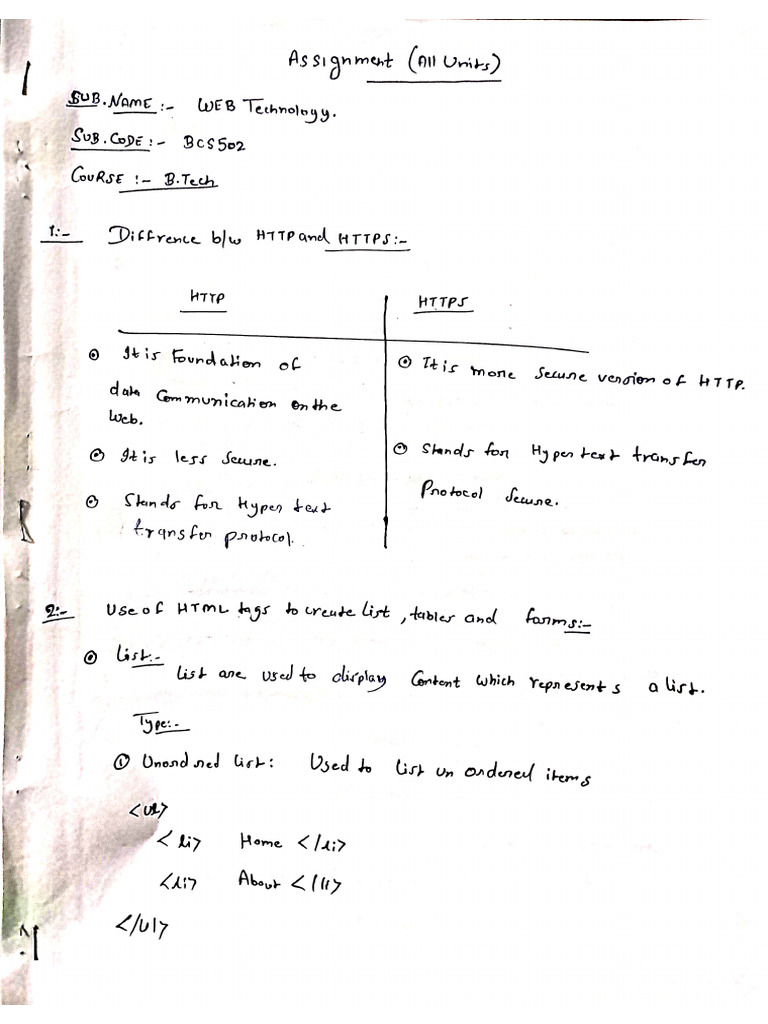 Assignment (All Units)
SUB.NAME :- WEB Technology.
SUB.CODE :- BCS502
COURSE :- B.Tech
1:- Diffrence b/w HTTP and HTTPS:-
HTTP
HTTPS
It is Foundation of
data Communication on the
Web.
It is less Secure.
Stands for Hyper text
transfer protocol.
It is more Secure version of HTTP.
Stands for Hyper text transfer
Protocol Secure.
2:- Use of HTML tags to create list, tables and forms:-
List:-
list are used to display Content which represents a list.
Type:-
① Unordred list: Used to list un ordered items
<ul>
<li> Home </li>
<li> About </li>
</ul>